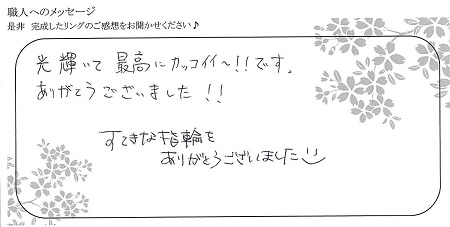 職人へのメッセージ
是非 完成したリングのご感想をお聞かせください♪
光輝いて 最高にカッコイイ~!!です。
ありがとうございました!!
すてきな指輪を
ありがとうございました